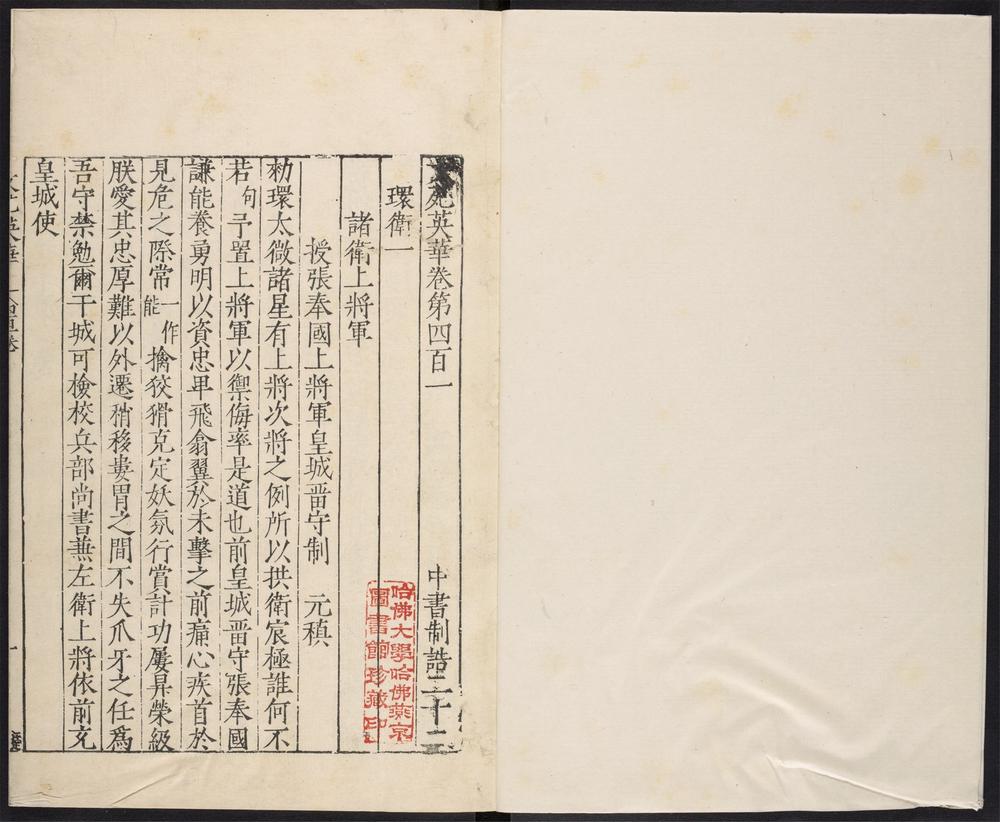 文苑英華卷第四百一　中書制誥二十二
環衛一
諸衛上將軍
授張奉國上將軍皇城畱守制　元稹
勑環太微諸星有上將次將之例所以拱衛宸極誰何不
若句予置上將軍以禦侮率是道也前皇城畱守張奉國
謙能養勇明以資忠毕飛翕翼於未擊之前痛心疾首於
見危之際常一作能擒狡猾克定妖氛行賞計功屢昇榮級
朕愛其忠厚難以外遷稍移婁胃之間不失爪牙之任爲
吾守禁勉爾干城可檢校兵部尚書兼左衛上將依前充
皇城使
一
哈佛大學哈佛燕京
圖書館珍藏印